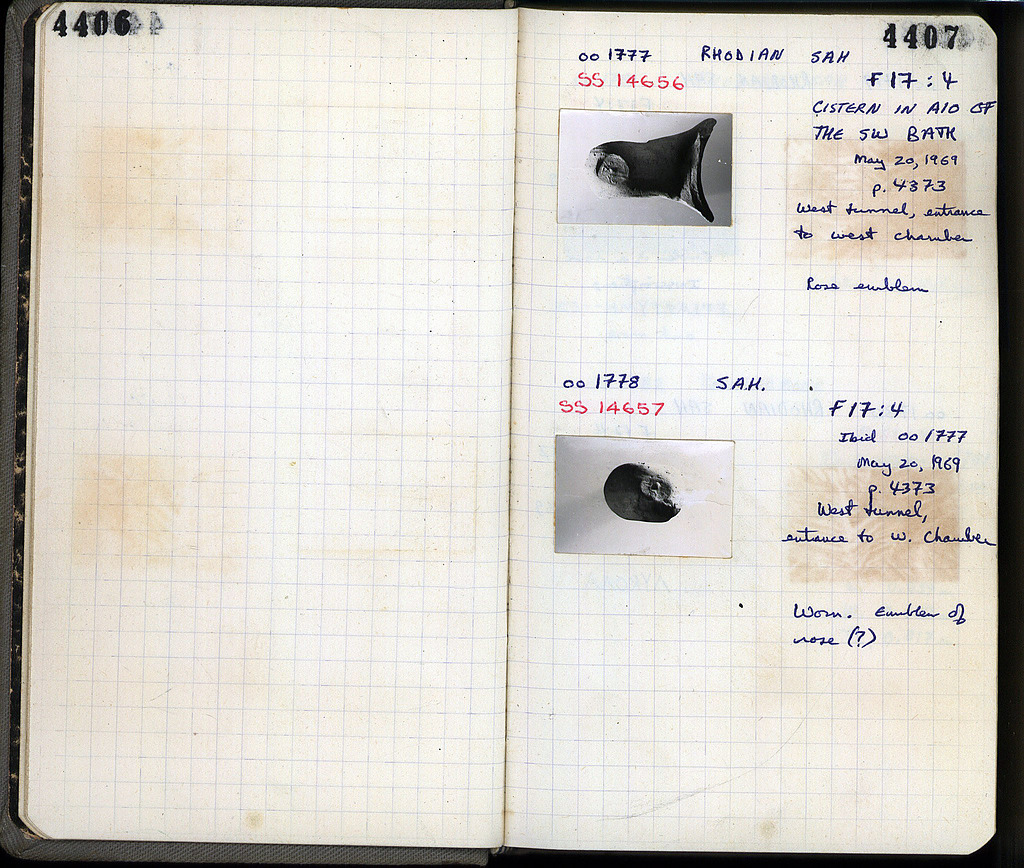 4406
4407
oo 1777 RHODIAN SAH
SS 14656
F 17 : 4
CISTERN IN A10 OF
THE SW BATH
May 20, 1969
p. 4373
West tunnel, entrance
to west chamber
Rose emblem
oo 1778 SAH.
SS 14657
F 17 : 4
Ibid oo 1777
May 20, 1969
p. 4373
West tunnel,
entrance to W. Chamber
Worn. Emblem of
rose (?)